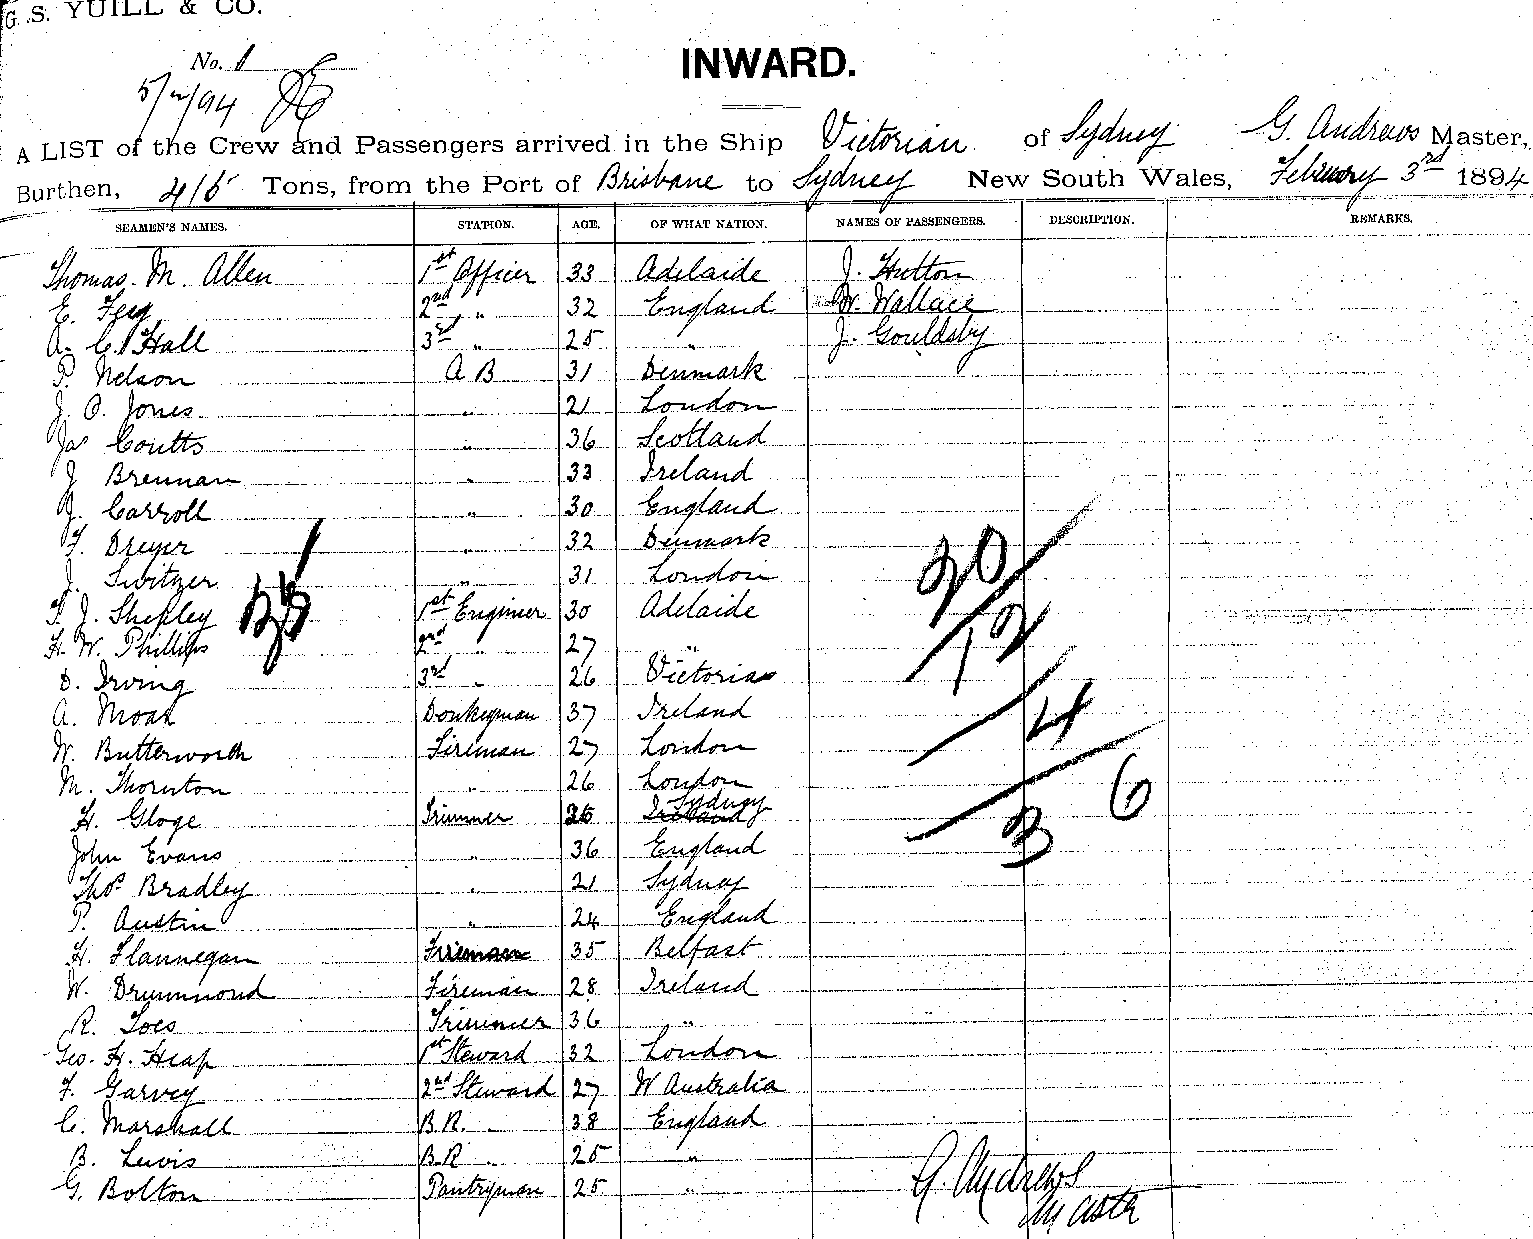 G. S. YUILL & CO.
No. 1
INWARD.
A LIST of the Crew and Passengers arrived in the Ship Victorian of Sydney G. Andrews Master,
Burthen, 416 Tons, from the Port of Brisbane to Sydney New South Wales, February 3rd 1894
SEAMEN'S NAMES. STATION. AGE, OF WHAT NATION. NAMES OF PASSENGERS. DESCRIPTION. REMARKS.
Thomas. M. Allen 1st Officer 33 Adelaide J. Hutton
E. Fegg 2nd " 32 England W. Wallace
A. C. Hall 3rd " 25 " J. Gouldsby
P. Nelson A B 31 Denmark
J. O. Jones " 21 London
Jas Coutts " 36 Scotland
J Brennan " 33 Ireland
J. Carroll " 30 England
F. Dreyer " 32 Denmark
J. Switzer " 31 London
F. J. Shepley 1st Engineer 30 Adelaide
H. W. Phillips 2nd " 27 "
D. Irving 3rd " 26 Victoria
A. Moak Donkeyman 37 Ireland
W. Butterworth Fireman 27 London
M. Thornton " 26 London
H. Gloge Trimmer 26 Ireland Sydney
John Evans " 36 England
Thos Bradley " 21 Sydney
P. Austin " 24 England
H. Flannegan Fireman 35 Belfast
W. Drummond Fireman 28 Ireland
R. Toes Trimmer 36 "
Geo. H. Heap 1st Steward 32 London
F. Garvey 2nd Steward 27 W Australia
C. Marshall B.R. 38 England
B. Lewis B.R " 25 "
G. Bolton Pantryman 25 "
20
12
4
6
3
G. Andrews
Master